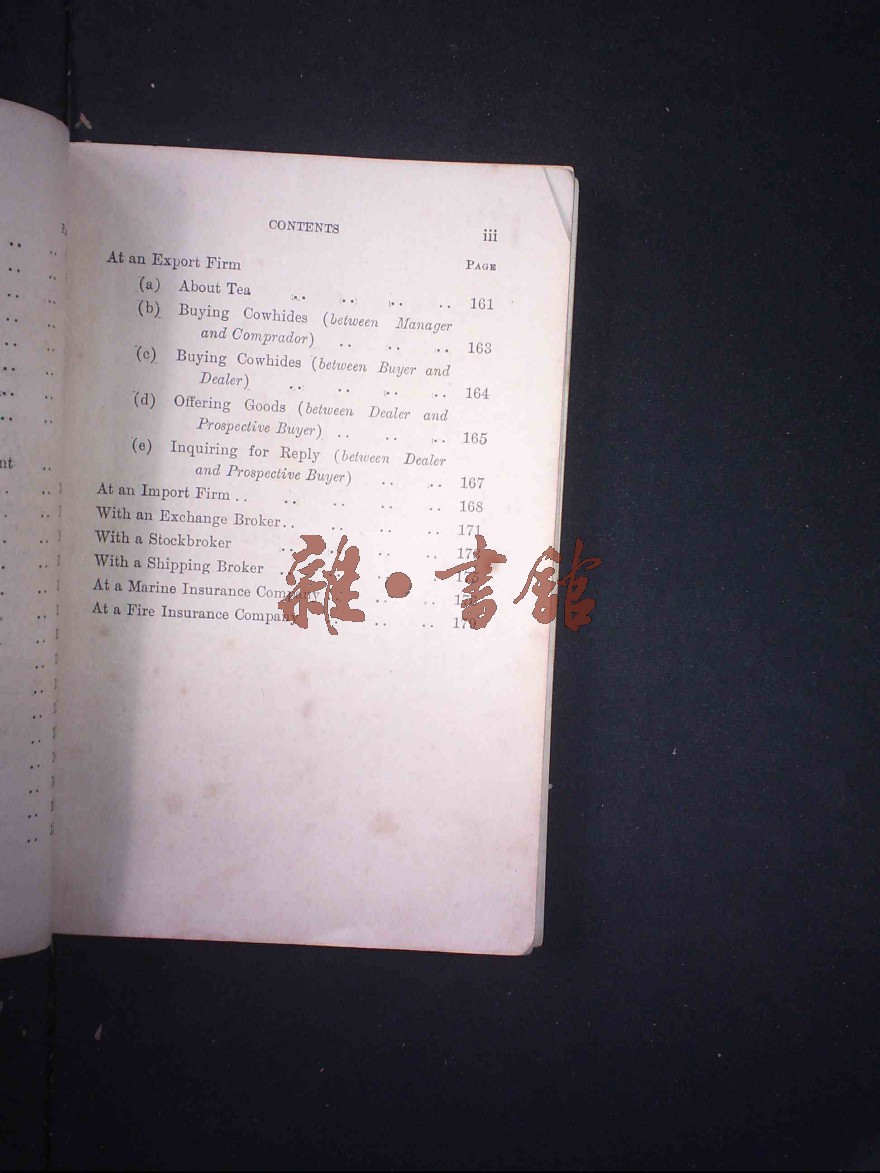 CONTENTS iii
At an Export Firm PAGE
(a) About Tea .. .. .. .. 161
(b) Buying Cowhides (between Manager
and Comprador) .. .. .. 163
(c) Buying Cowhides (between Buyer and
Dealer) .. .. .. .. 164
(d) Offering Goods (between Dealer and
Prospective Buyer) .. .. .. 165
(e) Inquiring for Reply (between Dealer
and Prospective Buyer) .. .. 167
At an Import Firm .. .. .. .. .. 168
With an Exchange Broker.. .. .. .. 171
With a Stockbroker .. .. .. ..
With a Shipping Broker .. .. ..
At a Marine Insurance Company .. .. ..
At a Fire Insurance Company .. .. .. 179
雜·書館
nt